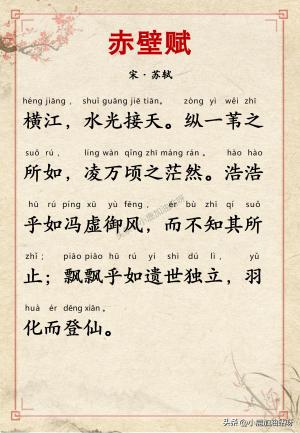 赤壁赋
宋·苏轼
héng jiāng， shuǐ guāng jiē tiān。 zòng yì wěi zhī
横江，水光接天。纵一苇之
suǒ rú， líng wàn qǐng zhī máng rán。 hào hào
所如，凌万顷之茫然。浩浩
hū rú píng xū yù fēng， ér bù zhī qí suǒ
乎如冯虚御风，而不知其所
zhǐ； piāo piāo hū rú yí shì dú lì， yǔ
止；飘飘乎如遗世独立，羽
huà ér dēng xiān。
化而登仙。
头条 @小鹿加油呀呀